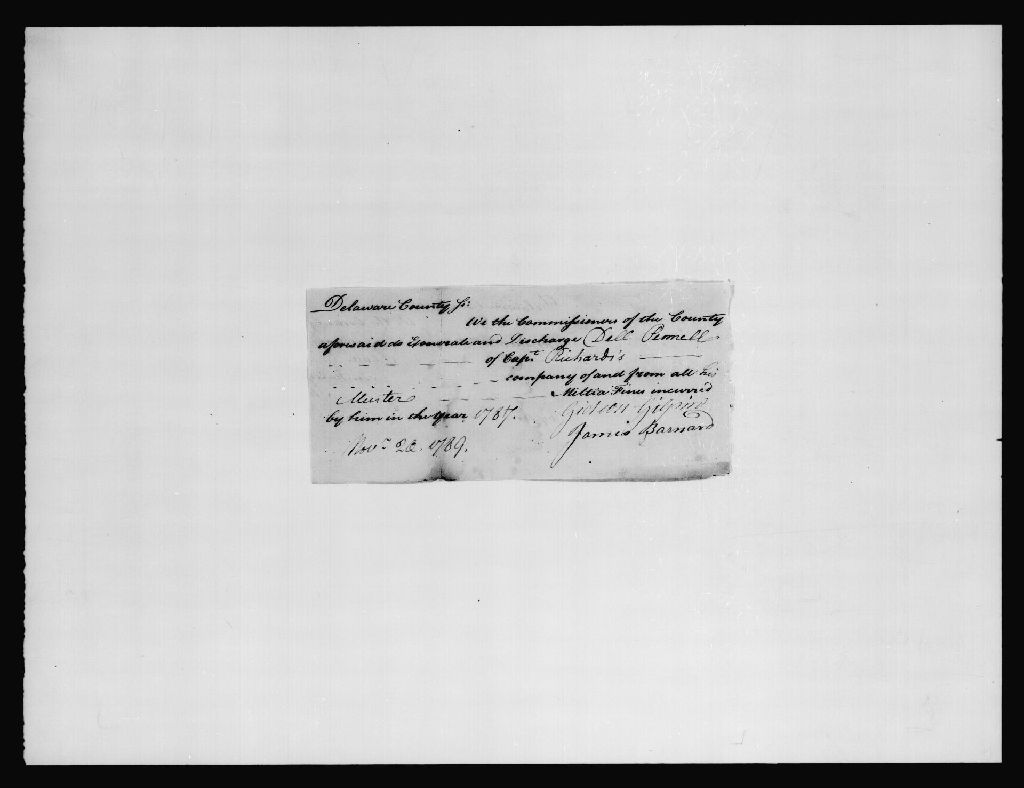 Delaware County ss:
We the Commissioners of the County
aforesaid do Exonerate and Discharge Dell Pennell
of Capt. Richards's
company of and from all his
Muster Militia Fines incurred
by him in the Year 1787.
Gideon Gilpin
James Barnard
Novr 1789.